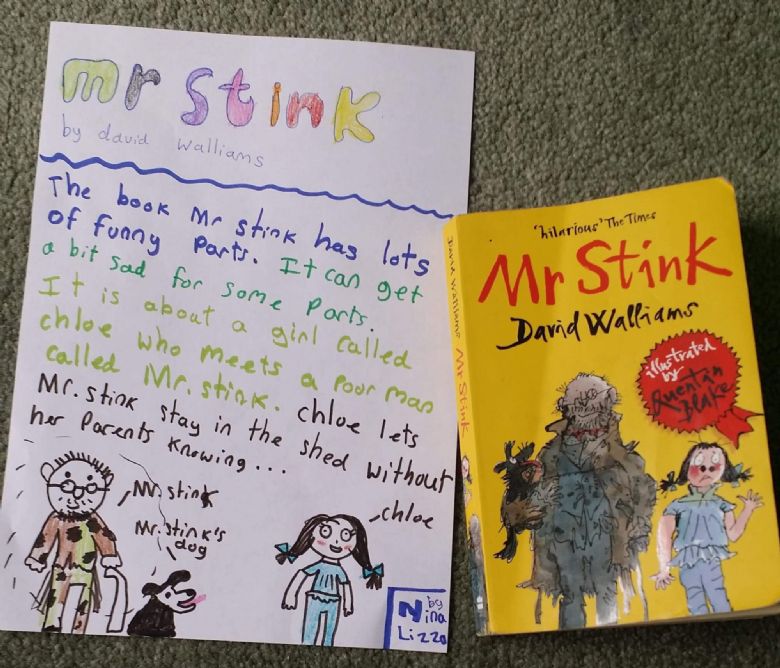 mr stink
by david walliams
The book Mr stink has lots
of funny parts. It can get
a bit sad for some parts.
It is about a girl called
chloe who meets a poor man
called Mr. stink. chloe lets
Mr. stink stay in the shed without
her parents knowing...
Mr. stink
Mr. stink's
dog
chloe
by
Nina
Lizzo
'hilarious' The Times
Mr Stink
David Walliams
illustrated
by
Quentin
Blake
David Walliams Mr Stink